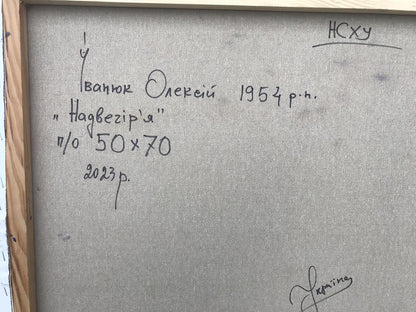 НСХУ
Іванюк Олексій 1954 р.н.
„Надвечір'я"
п/о 50x70
2023р.
Україна